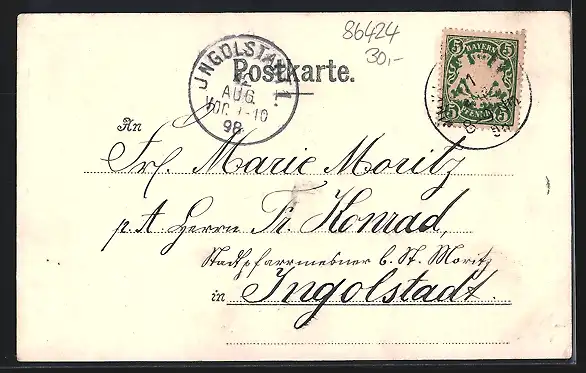 86424
30,-
INGOLSTADT 1.
AUG.
VOR. 9-10
98
Postkarte.
5 BAYERN 5
5 PFENNIG 5
An
Frl. Marie Moritz
p. A. Herrn Fr. Konrad,
Stadtpfarrmesner b. St. Moritz
in Ingolstadt.